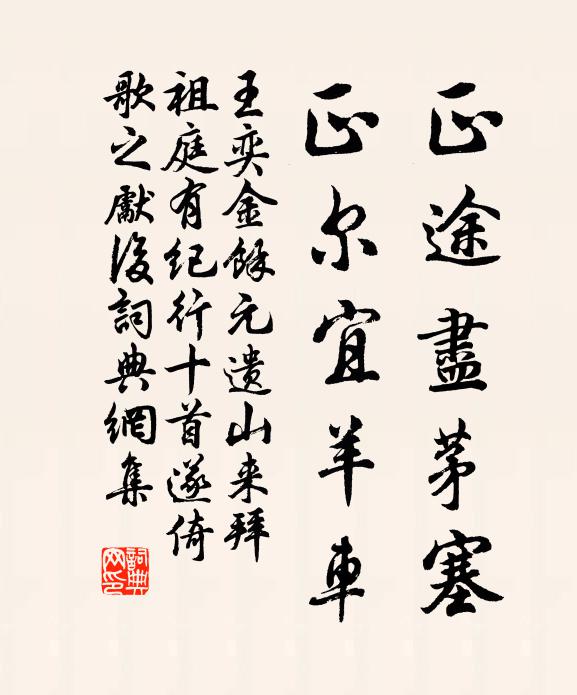 正途盡茅塞
正尔宜羊車
王奕金餘元遺山来拜
祖庭有纪行十首遂倚
歌之獻後詞典網集
詞典网印